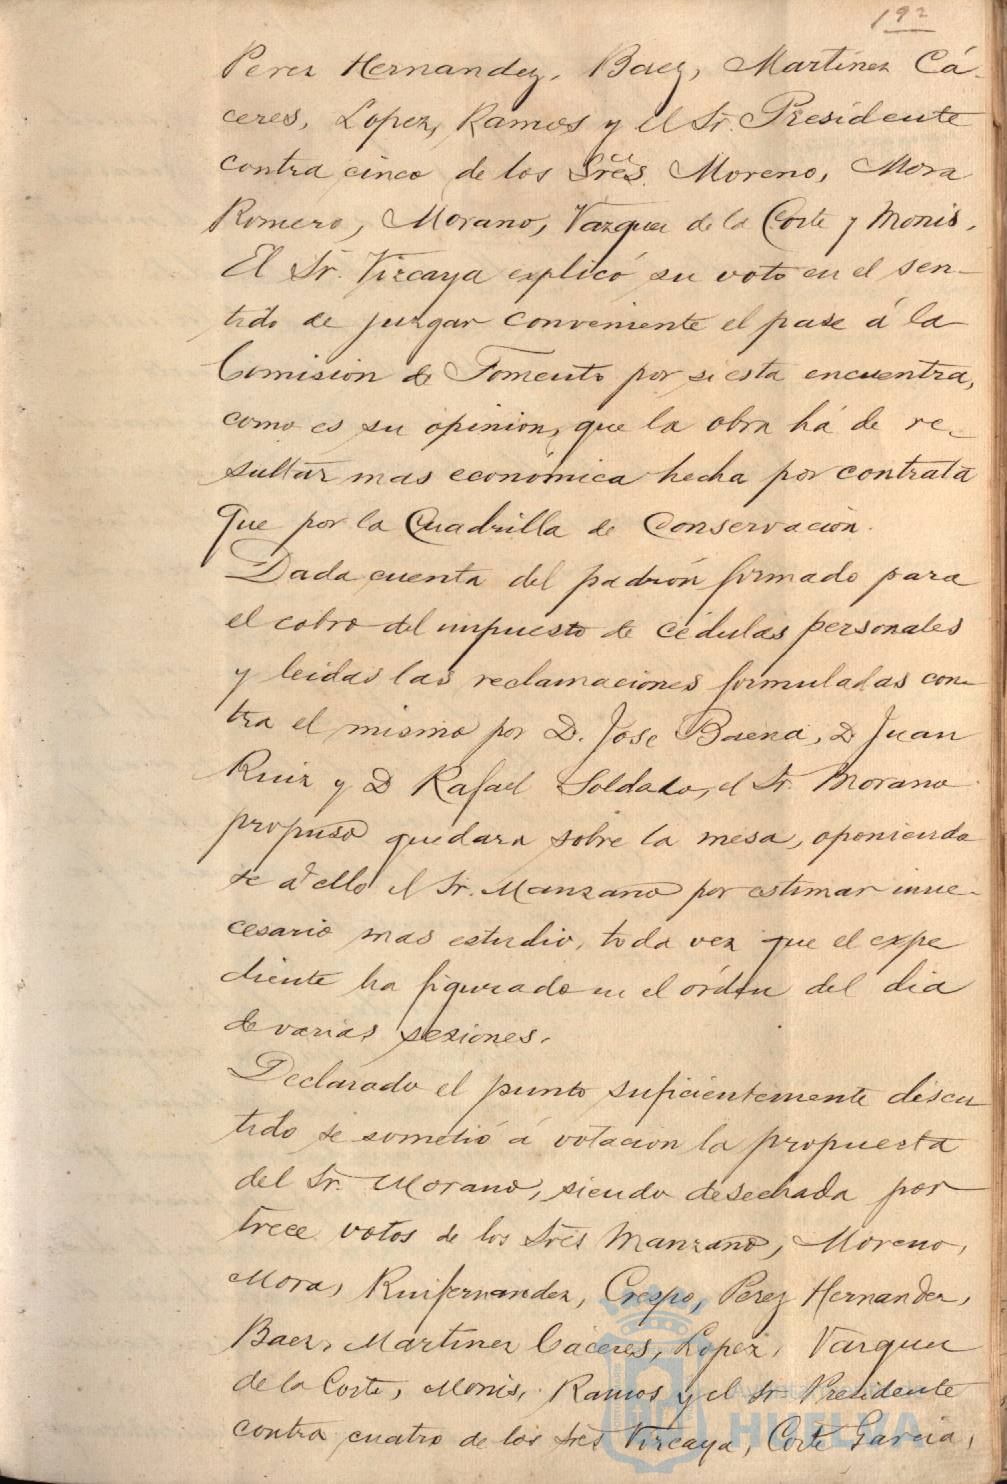 192
Perez Hernandez, Baez, Martinez Cá-
ceres, Lopez, Ramos y el Sr. Presidente
contra cinco de los Sres. Moreno, Mora
Romero, Morano, Vazquez de la Corte y Monis.
El Sr. Vizcaya explicó su voto en el sen-
tido de juzgar conveniente el pase á la
Comision de Fomento por si esta encuentra,
como es su opinion, que la obra há de re-
sultar mas económica hecha por contrata
que por la Cuadrilla de Conservacion.
Dada cuenta del padrón formado para
el cobro del impuesto de cédulas personales
y leidas las reclamaciones formuladas con-
tra el mismo por D. Jose Baena, D Juan
Ruiz y D Rafael Soldado, el Sr. Morano
propuso quedara sobre la mesa, oponiendo
se á ello el Sr. Manzano por estimar inne-
cesario mas estudio, toda vez que el expe
diente ha figurado en el órden del dia
de varias sesiones.
Declarado el punto suficientemente discu
tido se sometió á votacion la propuesta
del Sr. Morano, siendo desechada por
trece votos de los Sres Manzano, Moreno,
Mora, Ruifernandez, Crespo, Perez Hernandez,
Baez, Martinez Cáceres, Lopez, Vazquez
de la Corte, Monis, Ramos y el Sr Presidente
contra cuatro de los Sres Vizcaya, Corte Garcia,
HUELVA